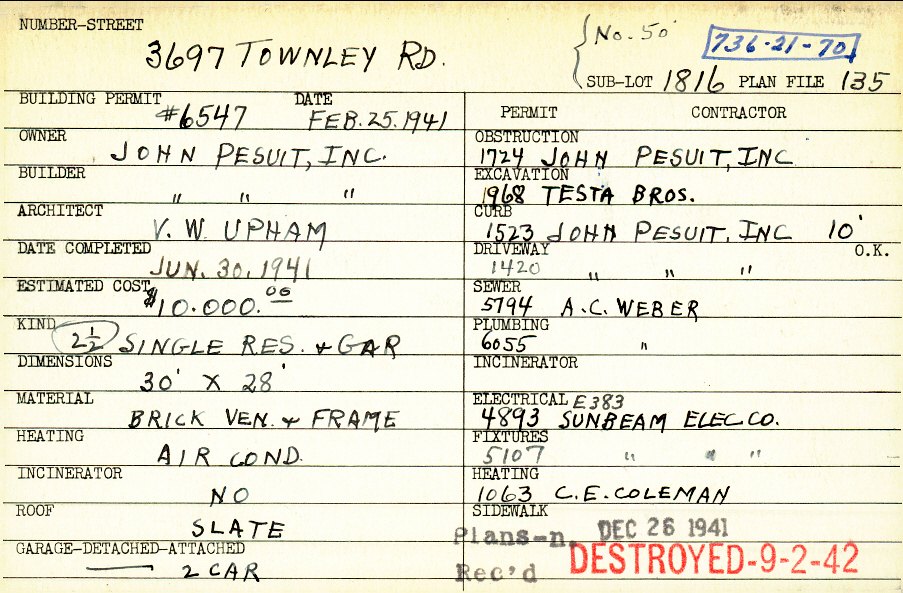 NUMBER-STREET
3697 TOWNLEY RD.
No. 50'
736-21-70
SUB-LOT 1816 PLAN FILE 135
BUILDING PERMIT DATE
#6547 FEB. 25. 1941
OWNER
JOHN PESUIT, INC.
BUILDER
" " "
ARCHITECT
V. W. UPHAM
DATE COMPLETED
JUN. 30, 1941
ESTIMATED COST
$10.000.00
KIND
2½ SINGLE RES. + GAR
DIMENSIONS
30' X 28'
MATERIAL
BRICK VEN. + FRAME
HEATING
AIR COND.
INCINERATOR
NO
ROOF
SLATE
GARAGE-DETACHED-ATTACHED
2 CAR
PERMIT CONTRACTOR
OBSTRUCTION
1724 JOHN PESUIT, INC
EXCAVATION
1968 TESTA BROS.
CURB
1523 JOHN PESUIT, INC 10'
DRIVEWAY O.K.
1420 " " "
SEWER
5794 A.C. WEBER
PLUMBING
6055 "
INCINERATOR
ELECTRICAL E383
4893 SUNBEAM ELEC. CO.
FIXTURES
5107 " " "
HEATING
1063 C.E. COLEMAN
SIDEWALK
Plans-n. DEC 26 1941
Rec'd DESTROYED-9-2-42